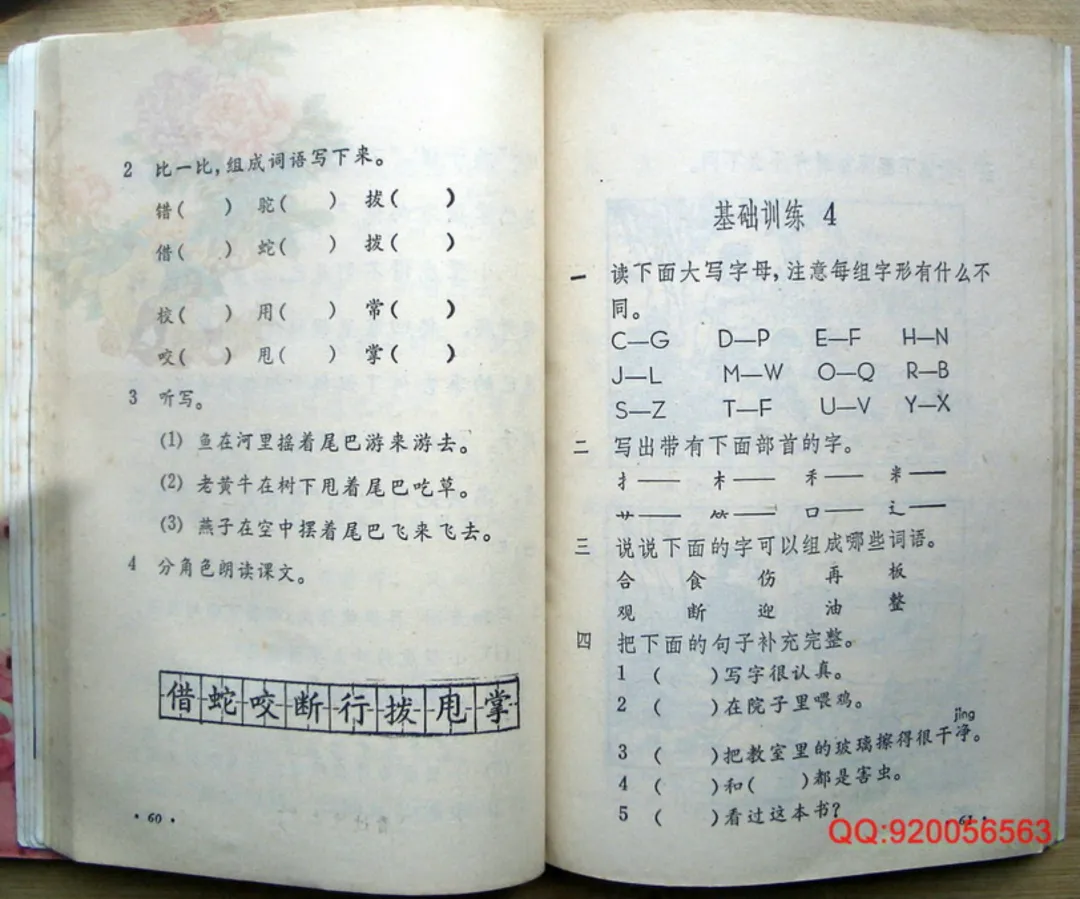 2 比一比,组成词语写下来。
错( ) 驼( ) 拔( )
借( ) 蛇( ) 拨( )
校( ) 用( ) 常( )
咬( ) 甩( ) 掌( )
3 听写。
(1) 鱼在河里摇着尾巴游来游去。
(2) 老黄牛在树下甩着尾巴吃草。
(3) 燕子在空中摆着尾巴飞来飞去。
4 分角色朗读课文。
借蛇咬断行拔甩掌
·60·
基础训练 4
一 读下面大写字母,注意每组字形有什么不
同。
C—G D—P E—F H—N
J—L M—W O—Q R—B
S—Z T—F U—V Y—X
二 写出带有下面部首的字。
扌—— 木—— 禾—— 米——
艹—— 竹—— 口—— 辶——
三 说说下面的字可以组成哪些词语。
合 食 伤 再 板
观 断 迎 油 整
四 把下面的句子补充完整。
1 ( )写字很认真。
2 ( )在院子里喂鸡。
jìng
3 ( )把教室里的玻璃擦得很干净。
4 ( )和( )都是害虫。
5 ( )看过这本书?
·61·
QQ:920056563